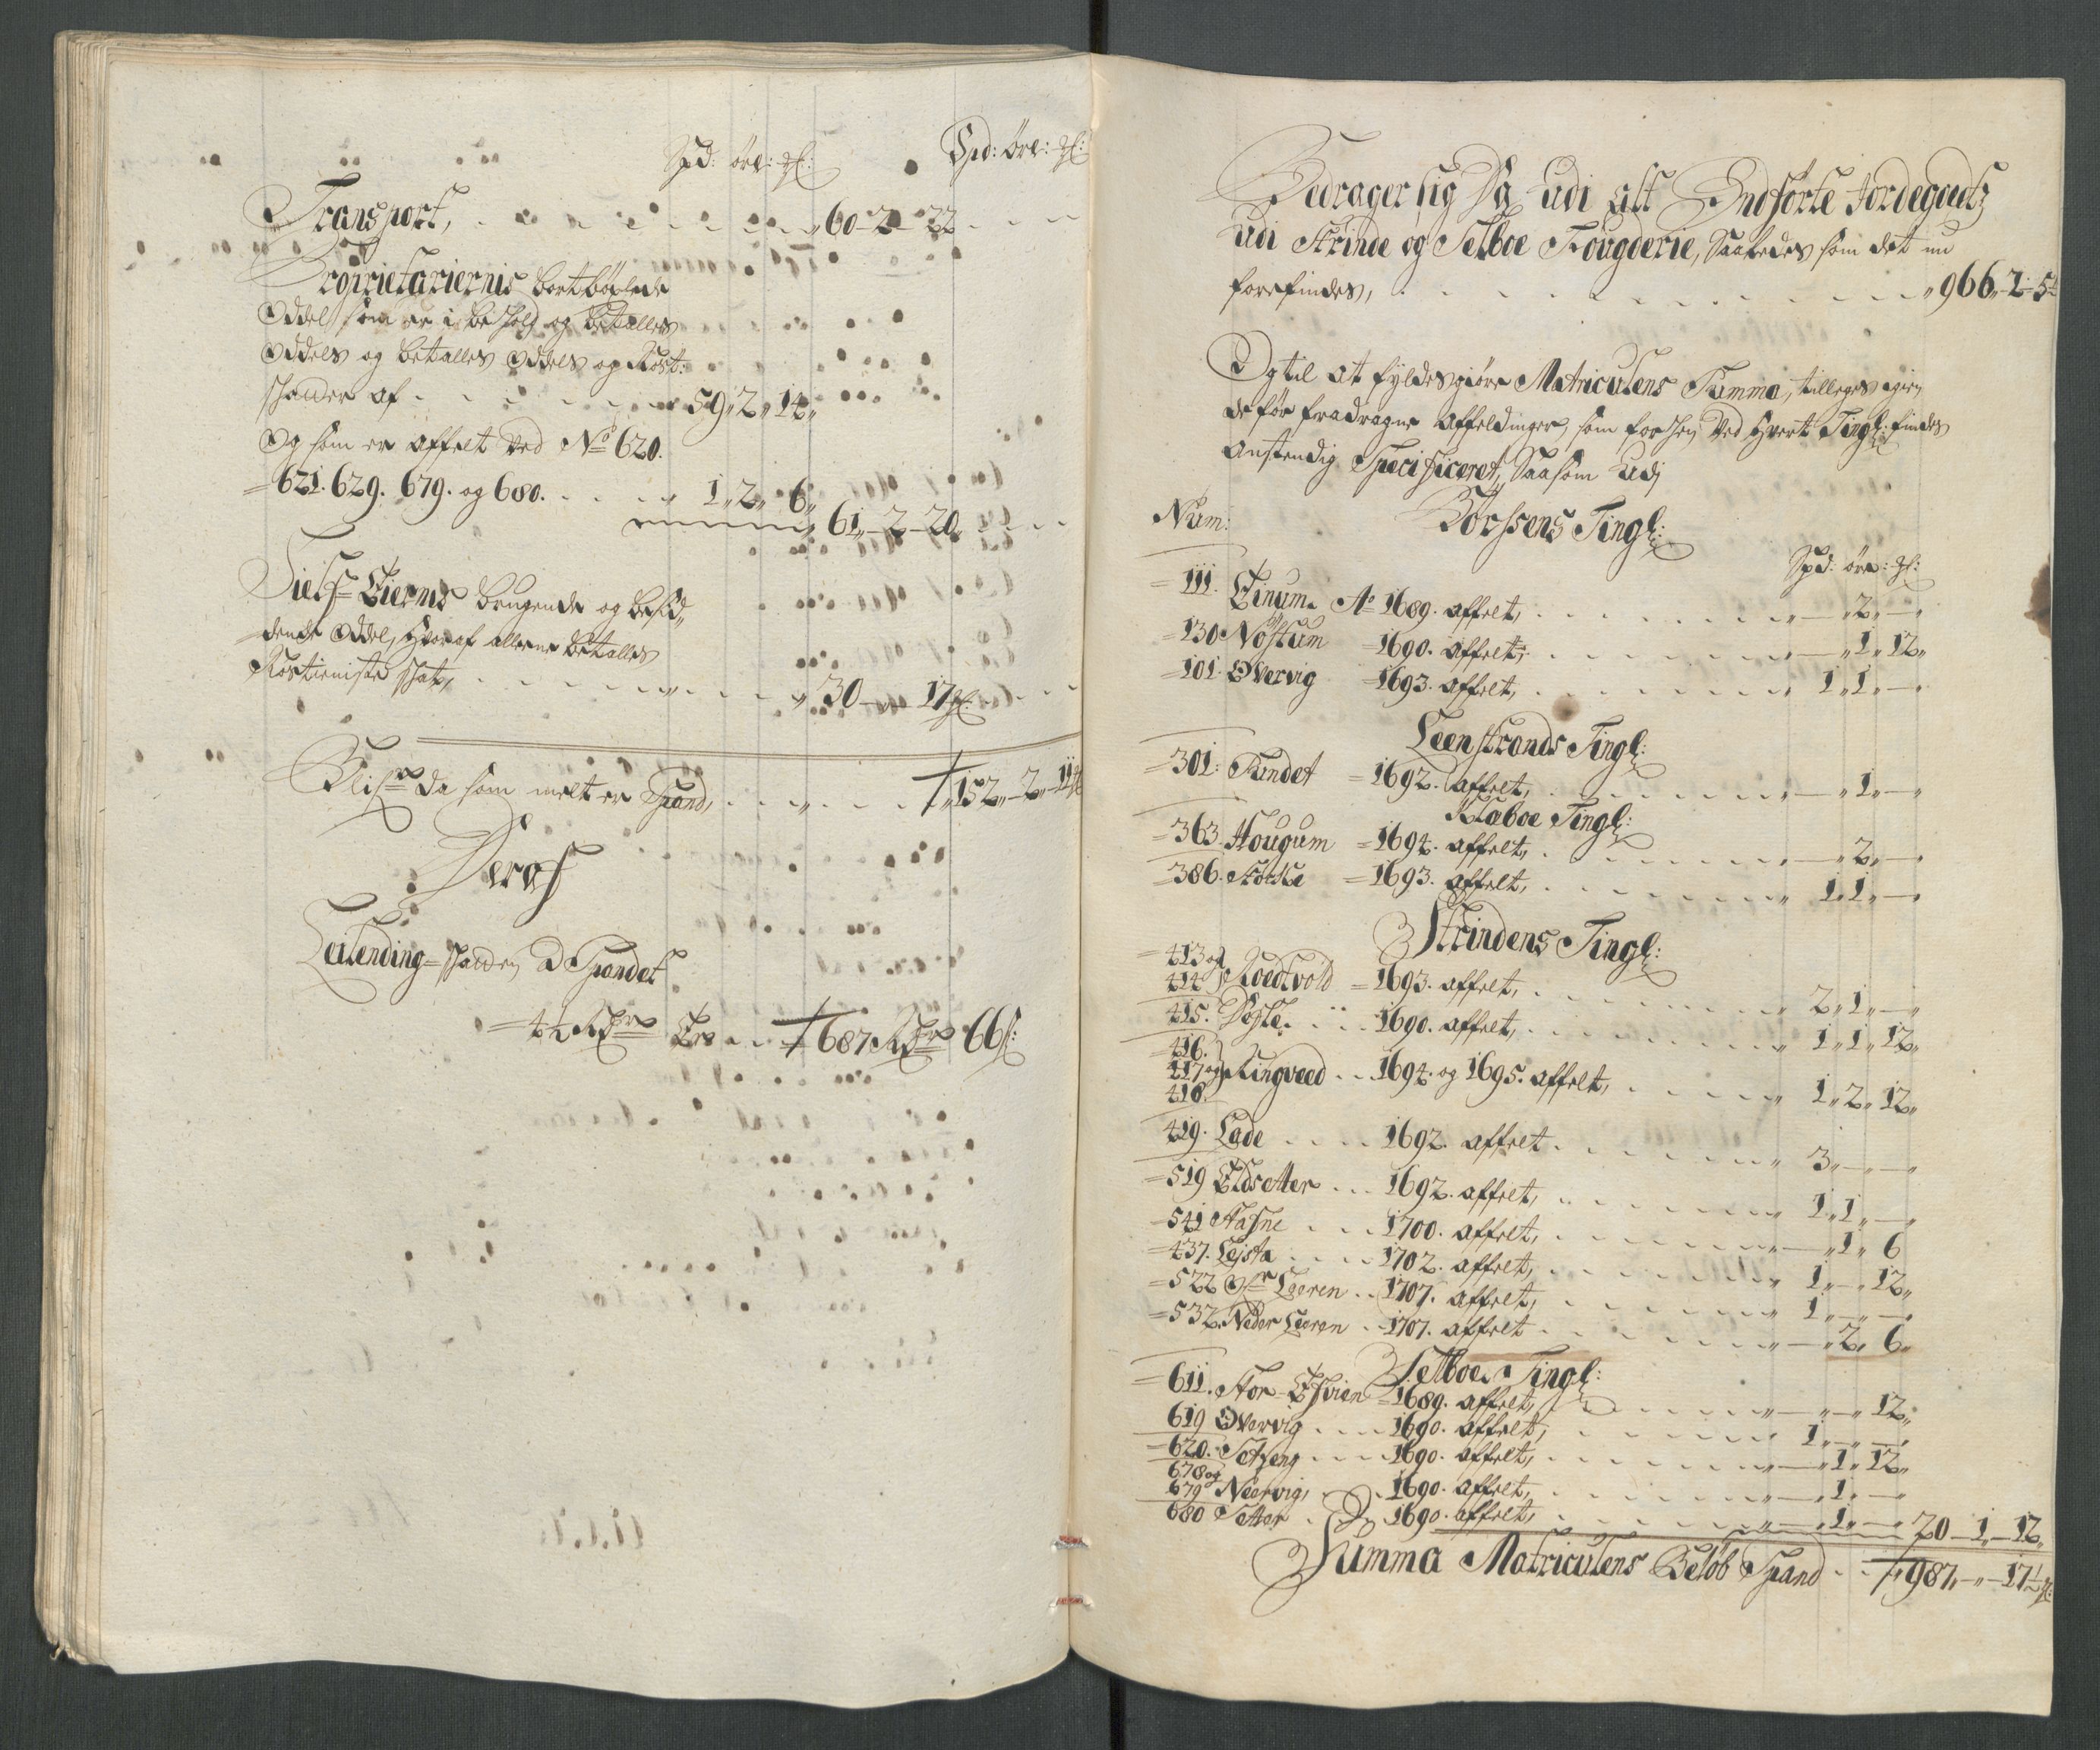 Spd: öre: gl:
Spd: öre: gl:
Transport, 60-2-22
Proprietariernis bortböxlede
Oddel som er i behold og betalles
Oddels og betalles Oddels og Rost:
schatter af 59„2„14„
Og som er affelt ved No 620.
=621. 629. 679. og 680. 1„2„6„
61„-2-20„
Sielf Eiernis brugende og besid„
dende Oddel, Hvoraf allene betalles
Rostieniste schat, 30-„-17gl:
Blifr da som melt er Spand, 152„-2„-11
Deraf
Leilending=schatten à Spandet
=4½ Rdr Er 687 Rdr 66s:
Bedrager sig da udi alt Indförte Jordegoedtz
udi Strinde og Selboe Fougderie, saaledes som det nu
forefindes, 966„-2-5
Og til at fyldesgiöre Matriculens Summa, tillegges igien
de för fradragne Affeldinger, som forhen ved hvert Tingl: findes
Anstendig Specificeret, Saasom Udj
Num: Börssens Tingl:
Spd: öre: gl:
=111. Einum Ao 1689. affelt, -„2„-
=130 Nöstum =1690. affelt, -„1„12„
=101. Overvig =1693. affelt, 1„1„-
Leenstrands Tingl:
=301: Sundet =1692. affelt, -„1„-
Klæboe Tingl:
=363. Hougum =1694. affelt, -„2„-
=386. =1693. affelt, 1„1„-
Strindens Tingl:
=413 og
414 Roedtvold =1693. affelt, 2„1„-
415. 1690. affelt, 1„1„12„
=416.
417 og Ringveed 1694. og 1695. affelt, 1„2„12„
418.
419. Lade 1692. affelt 3„-„-
=519 Eldsetter 1692. affelt, 1„1„-
541 Stafne 1700. affelt, -„1„6
=437. Lejsta 1702. affelt, 1„-„12„
=522 Leeren 1707. affelt, 1„-„-
=532. Neder Leeren 1707. affelt -„2„6„
Selboe Tingl:
=611. Stor=Evien =1689. affelt, -„-„12„
619 Overvig 1690. affelt, 1„-„-
=620. Setzeng 1690. affelt, -„1„12„
678 og
679 Neervig, 1690. affelt, -„1„-
680 Setter 1690. affelt, -„1„- 20-1-12„
Summa Matriculens Belöb Spand 987„-„-17½ gl: